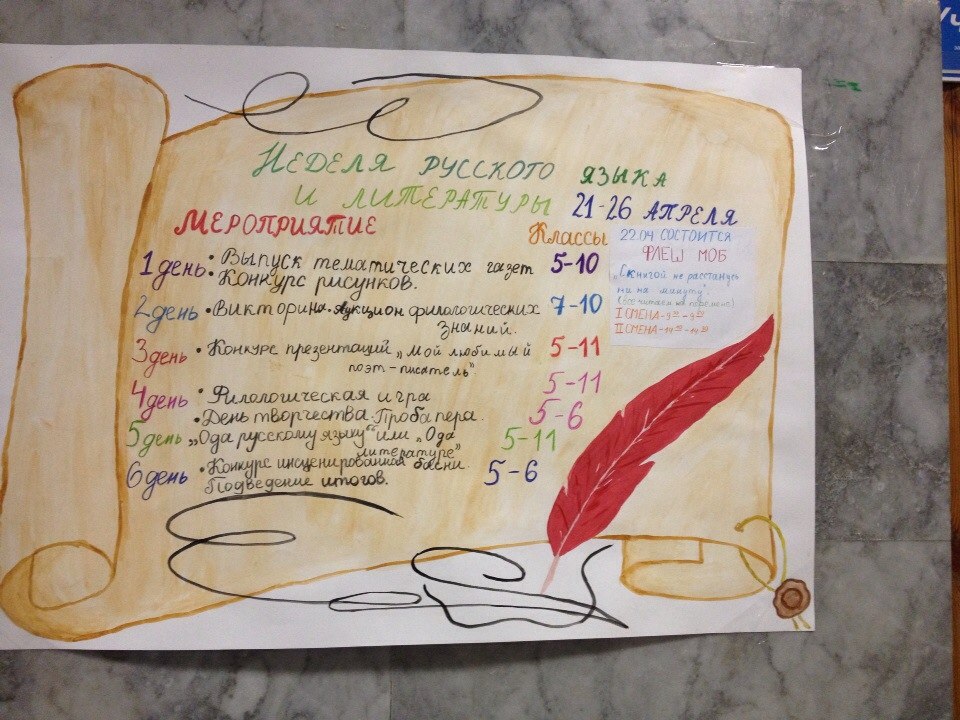 НЕДЕЛЯ РУССКОГО ЯЗЫКА
И ЛИТЕРАТУРЫ 21-26 АПРЕЛЯ
МЕРОПРИЯТИЕ Классы
1 день • Выпуск тематических газет 5-10
• Конкурс рисунков.
2 день • Викторина. Аукцион филологических 7-10
знаний.
3 день • Конкурс презентаций „Мой любимый 5-11
поэт-писатель".
4 день • Филологическая игра 5-11
• День творчества. Проба пера. 5-6
5 день „Ода русскому языку" или „Ода 5-11
литературе"
6 день • Конкурс инсценированной басни. 5-6
Подведение итогов.
22.04 СОСТОИТСЯ
ФЛЕШ МОБ
„С книгой не расстанусь
ни на минуту".
(все читаем на перемене)
I СМЕНА-9
II СМЕНА-14